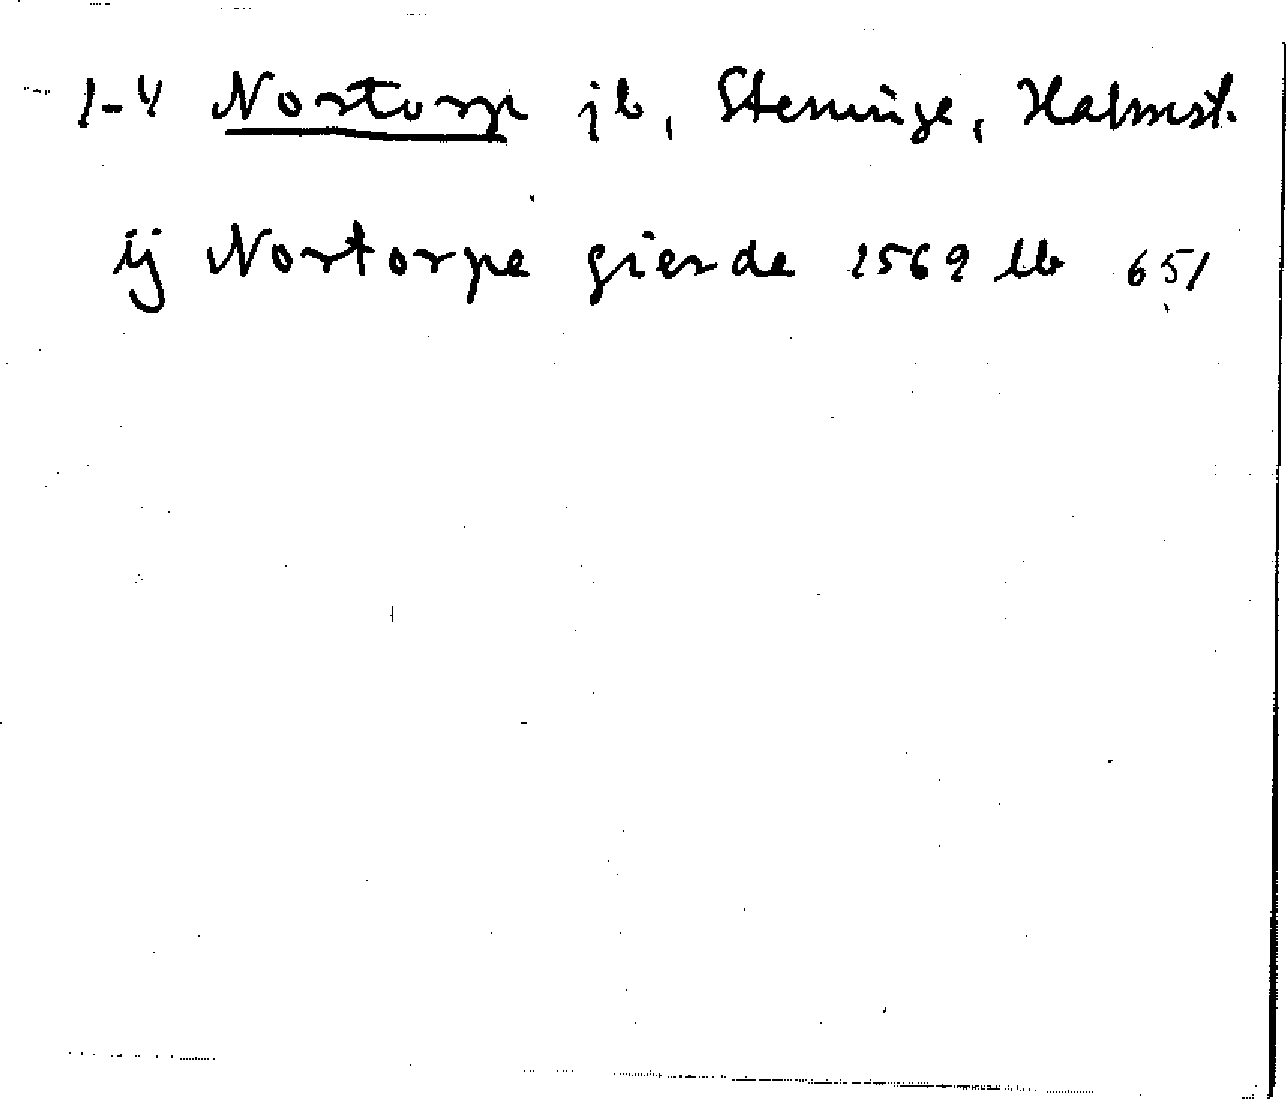 1-4 Nortorp jb, Steninge, Halmst.
ij Nortorpe gierde 1569 llb 651